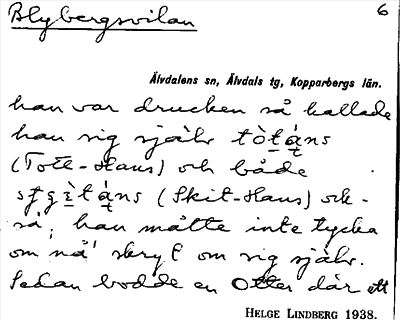 Blybergsvilan
6
Älvdalens sn, Älvdals tg, Kopparbergs län.
han var drucken så kallade
han sig själv
(Tott-Hans) och både
(Skit-Hans) och
så, han måtte inte tycka
om nå' skryt om sig själv.
Sedan bodde en Otter där ett
HELGE LINDBERG 1938.